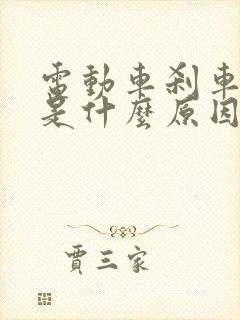 電動車刹車
是什麼原因
賈三家